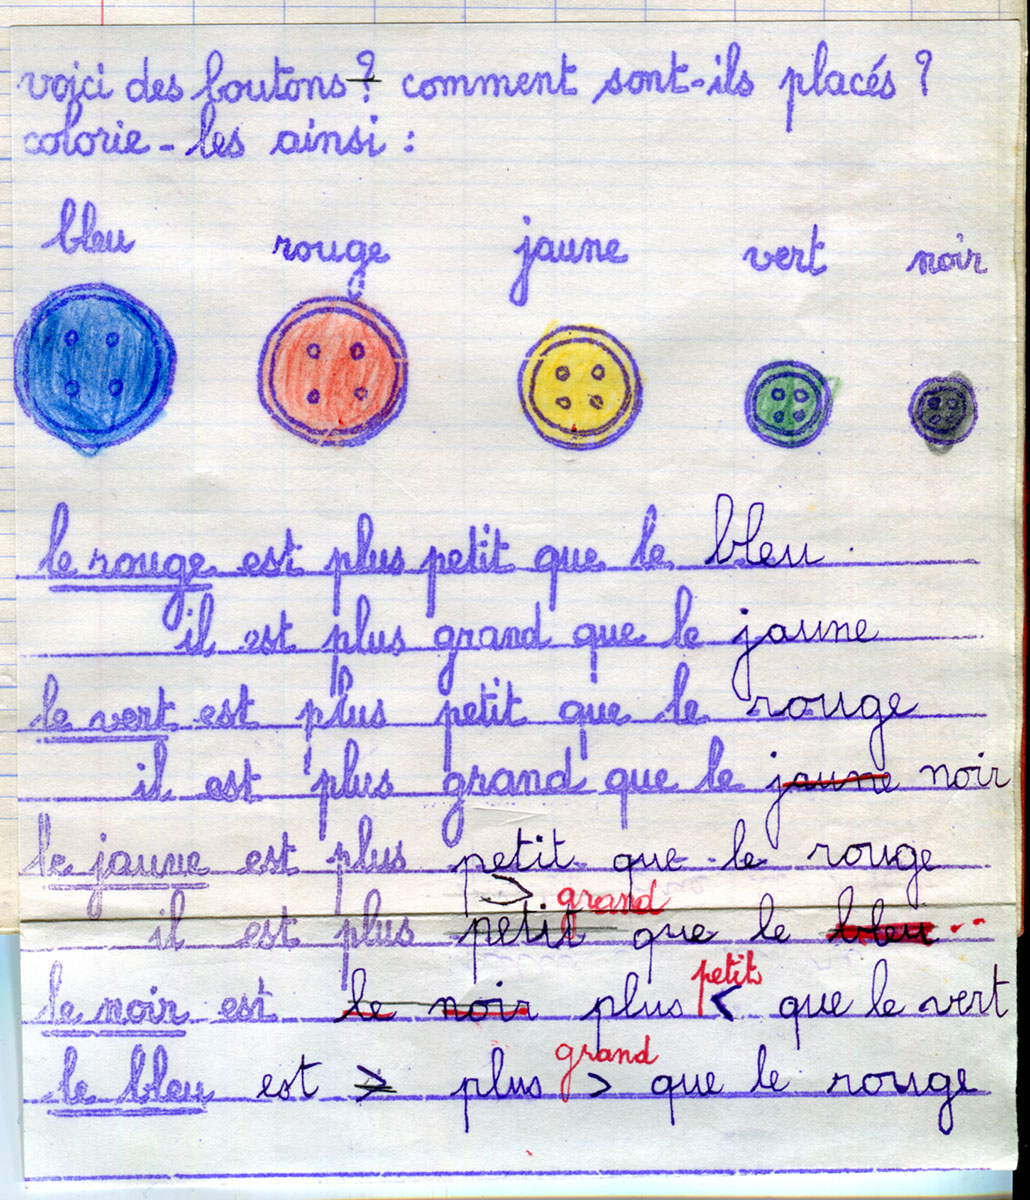 voici des boutons? comment sont-ils placés ?
colorie-les ainsi :
bleu rouge jaune vert noir
le rouge est plus petit que le bleu.
il est plus grand que le jaune
le vert est plus petit que le rouge
il est plus grand que le jaune noir
le jaune est plus petit que le rouge
> grand
il est plus petit que le bleu..
petit
le noir est le noir plus < que le vert
grand
le bleu est > plus > que le rouge